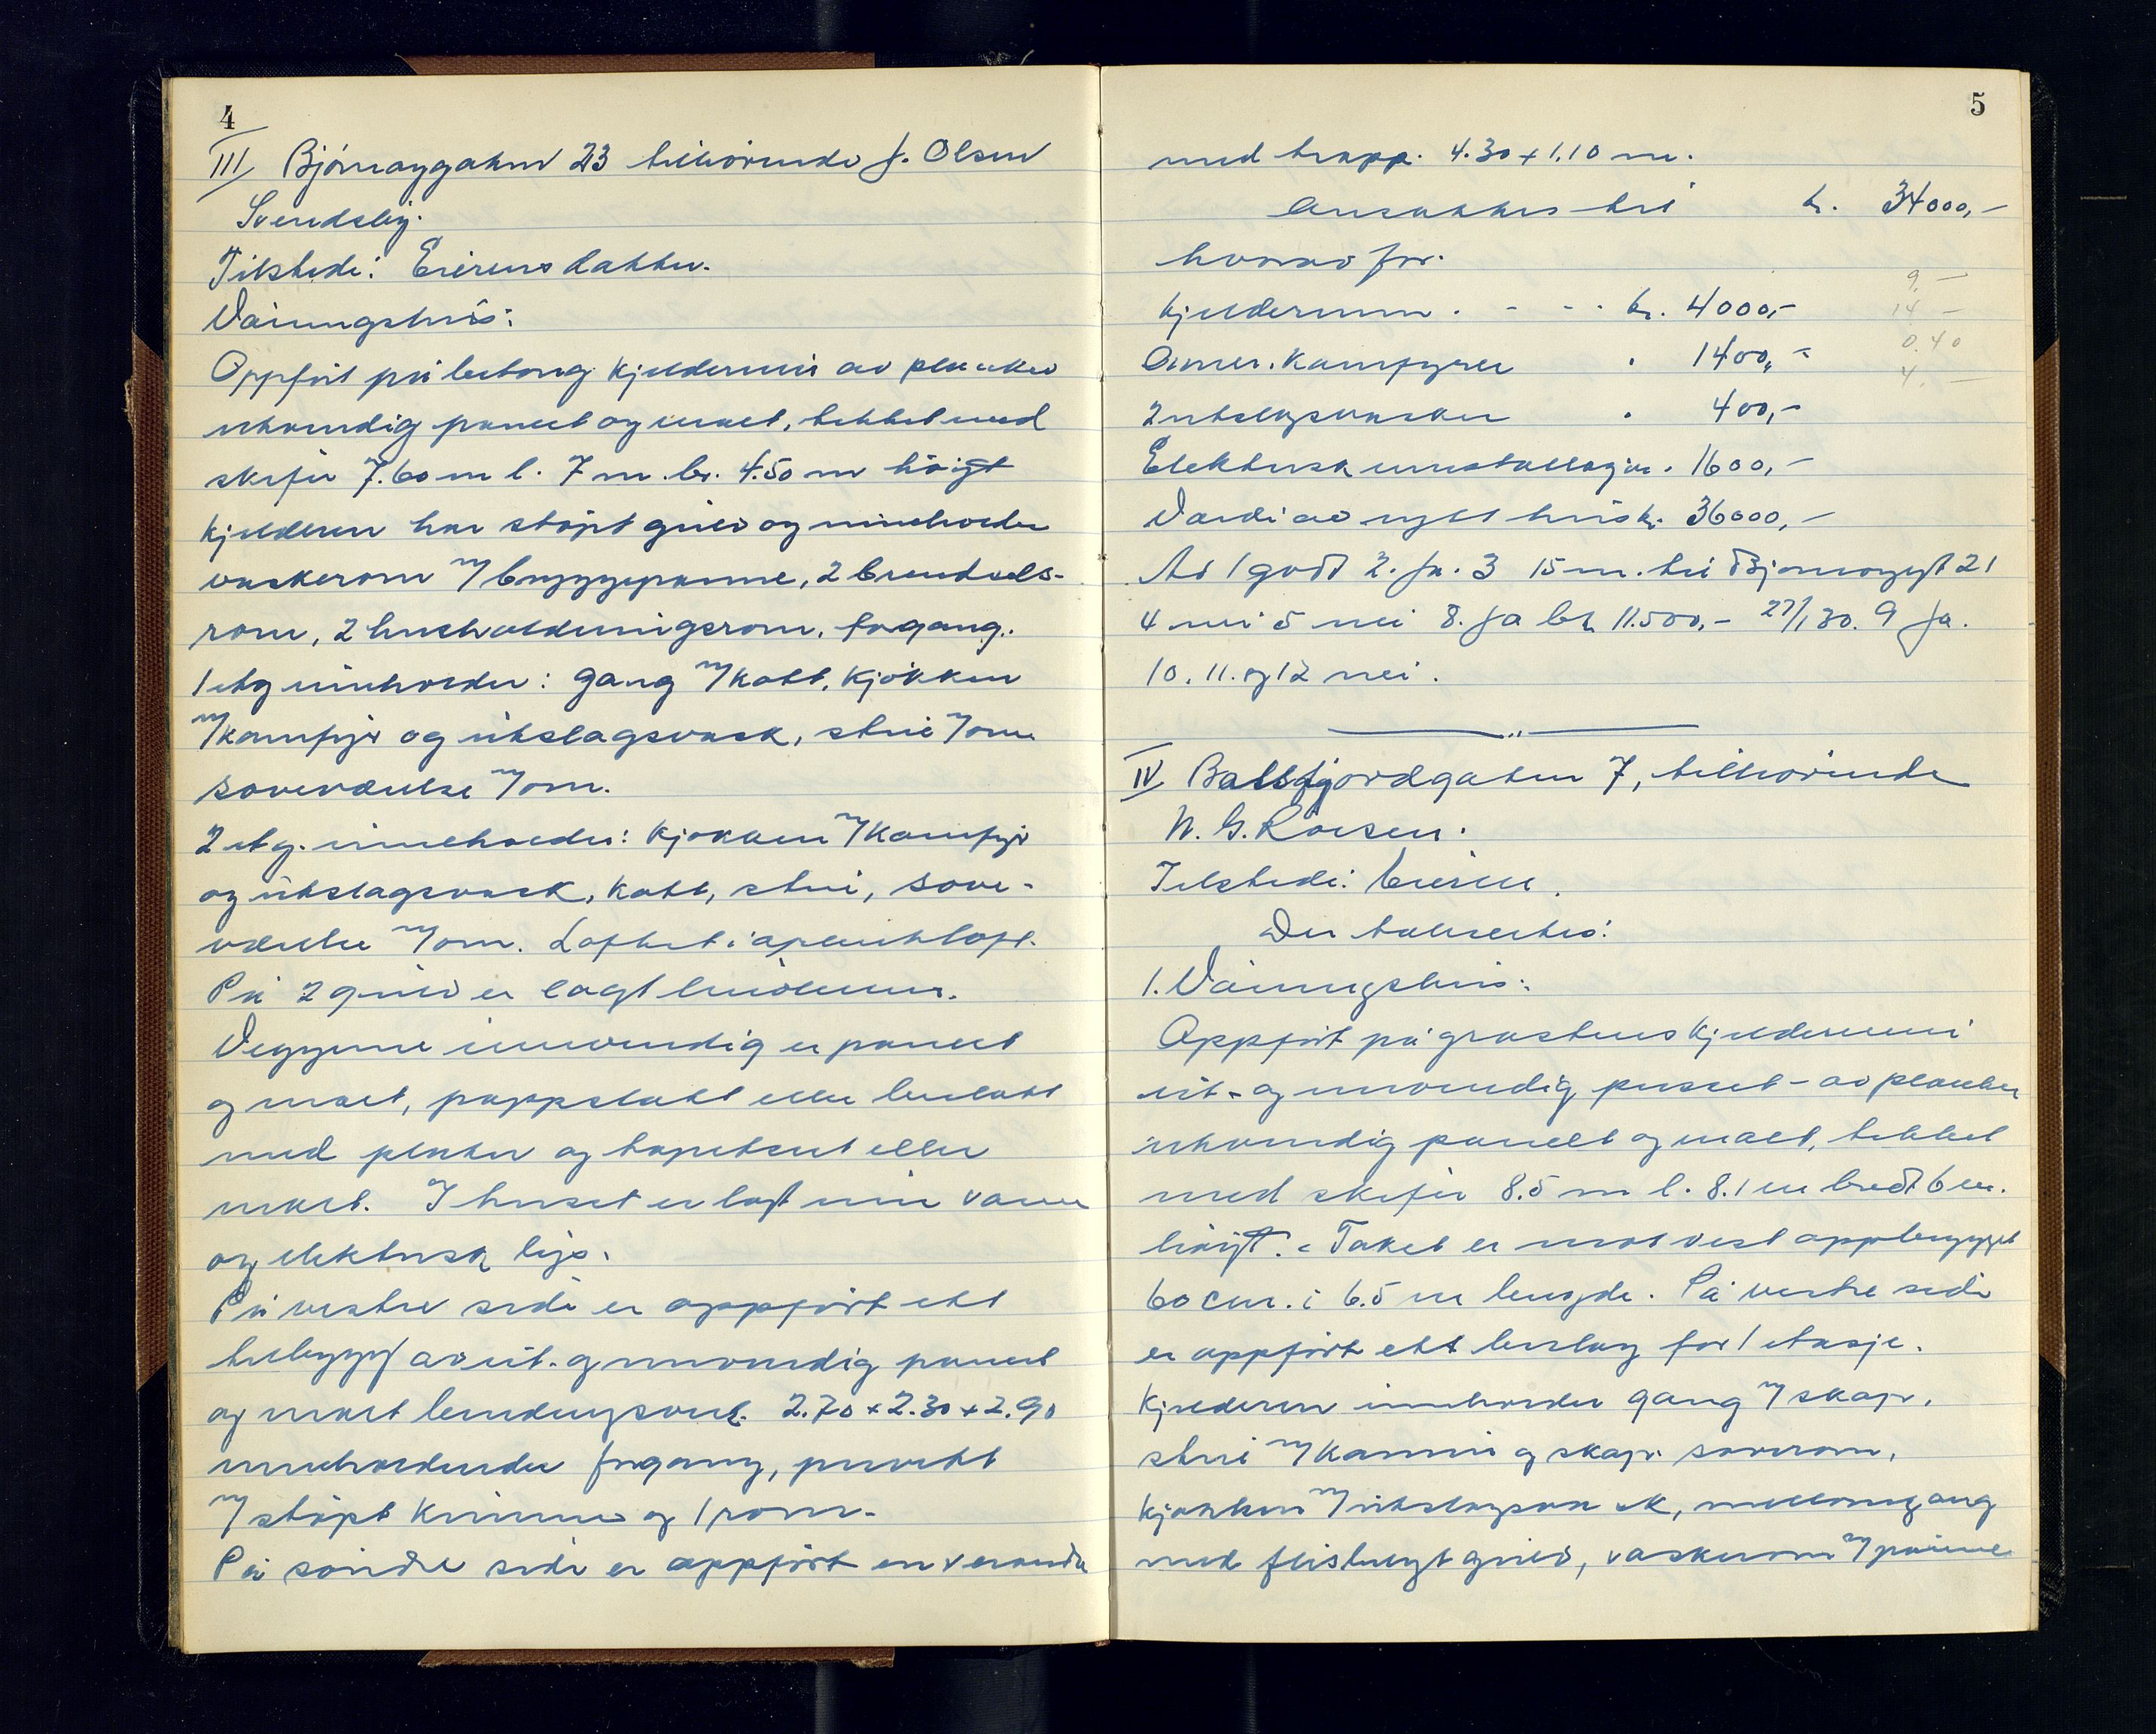 4
III Bjørnøygaten 23 tilhørende J. Olsen
Svendsby.
Tilstede: Eierens datter.
Våningshus:
Oppført på betong kjeldermur av planker
utvendig panelt og malt, tekket med
skifer 7.60 m l. 7 m. br. 4.50 m høigt
Kjelderen har støpt gulv og inneholder
vaskerom m/ bryggepanne, 2 brendsels-
rom, 2 husholdningsrom, forgang.
1 etg inneholder: gang m/ kott, kjøkken
m/ komfyr og utslagsvask, stue m/ ovn
soveværelse m/ ovn.
2 etg. inneholder: kjøkken m/ komfyr
og utslagsvask, kott, stue, sove-
værelse m/ ovn. Loftet: åpent loft.
På 2 gulv er lagt linoleum.
Veggene innvendig er panelt
og malt, pappslått eller beslått
med plater og tapetsert eller
malt. I huset er lagt inn vann
og elektrisk lys.
På vestre side er oppført ett
tilbygg av ut- og innvendig panelt
og malt bendingsverk. 2.70 x 2.30 x 2.90
inneholdende forgang, privett
m/ støpt kumme og 1 rom.
På søndre side er oppført en veranda
5
med trapp. 4.30 x 1.10 m.
Ansattes til kr. 34000,-
hvorav for.
Kjeldermur . - - . kr. 4000,-
9,-
14 -
Ovner. Komfyrer . 1400,-
0.40
4. -
2 utslagsvasker . 400,-
Elektrisk installasjon . 1600,-
Verdi av nytt hus kr. 36000,-
Ad 1 godt 2. Ja. 3 15 m. til Bjørnøygt 21
4 nei 5 nei 8. Ja br. 11.500,- 27/1 30. 9 Ja.
10. 11. og 12 nei.
IV Balsfjordgaten 7, tilhørende
Tilstede: Eieren.
Der takseres:
1. Våningshus:
Oppført på gråstens kjeldermur
ut- og innvendig pusset - av planker
utvendig panelt og malt, tekket
med skifer 8.5 m l. 8.1 m bredt 6 m.
høigt. - Taket er mot vest oppbygget
60 cm. i 6.5 m lengde. På vestre side
er oppført ett bislag for 1 etasje.
Kjelderen inneholder gang m/ skap,
stue m/ kamin og skap. soverom,
kjøkken m/ utslagsvask, mellomgang
med flisbelagt gulv, vaskerom m/ panne